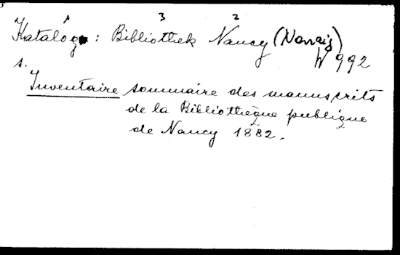 1 3 2
Katalog: Bibliothek Nancy (Navaig)
W 992
s.
Inventaire sommaire des manuscrits
de la Bibliothèque publique
de Nancy 1882.